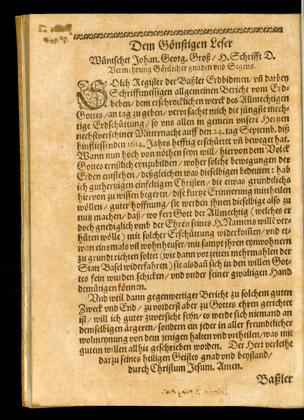 Dem Günstigen Leser
Wünschet Johan. Georg. Groß / H. Schrifft D.
Vermehrung Göttlicher gnaden und Segens.
Solch Register der Baßler Erdbidmen / uñ darbey
Schrifftmessigen allgemeinen Bericht vom Erd⸗
beben / dem erschrockenlichen werck des Allmechtigen
Gottes / an tag zu geben / verursachet mich die jüngste nech⸗
tige Erdschüttung / so uns allen in gemein unsere Hertzen
nechstverschiner Mitternacht auff den 24. tag Septemb. diß
hinfliessenden 1614. Jahrs hefftig erschüttet uñ beweget hat.
Wann nun hoch von nöthen seyn will / hiervon dem Volck
Gottes ernstlich einzubilden / woher solche bewegungen der
Erden entstehen / deßgleichen was dieselbigen bedeuten: hab
ich gutherzigen einfeltigen Christen / die etwas grundtlichs
hiervon zu wissen begeren / dise kurtze Erinnerung mittheilen
wöllen / guter hoffnung / sie werden ihnen dieselbige also zu
nutz machen / daß / wo fern Gott der Allmechtig (welches er
doch gnediglich und der Ehren seines H. Nammens will ver⸗
hüten wölle) mit solcher Erschüttung widerkommen / und et⸗
wan einsmals vil wohnheuser / mit sampt ihren eynwohnern
zu grund richten solte (wie dann vorzeiten mehrmahlen der
Statt Basel widerfahren) sie alsdañ sich in den willen Got⸗
tes fein wurden schicken / und under seiner gwaltigen Hand
demütigen können.
Und weil dann gegenwertiger Bericht zu solchem guten
Zweck und End / zuvorderst aber zu Gottes ehren gerichtet
ist / will ich guter zuversicht seyn / es werde sich niemand an
demselbigen ärgeren / sondern ein jeder in aller freundtlicher
wolmeynung von dem jenigen halten und urtheilen / was mit
gutem willen allhie geschrieben worden. Der Herr verleihe
darzu seines heiligen Geistes gnad und beystand /
durch Christum Jesum, Amen.
Baßler